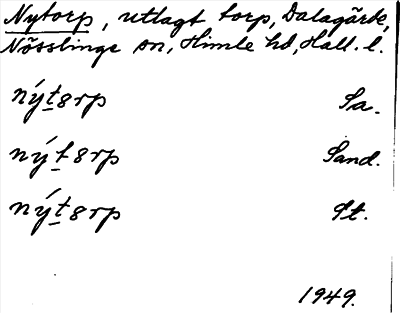 Nytorp, utlagt torp, Dalagärde,
Nösslinge sn, Himle hd, Hall. l.
ný̱t8rp Sa.
ný̱t8rp Sand.
ný̱t8rp St.
1949.